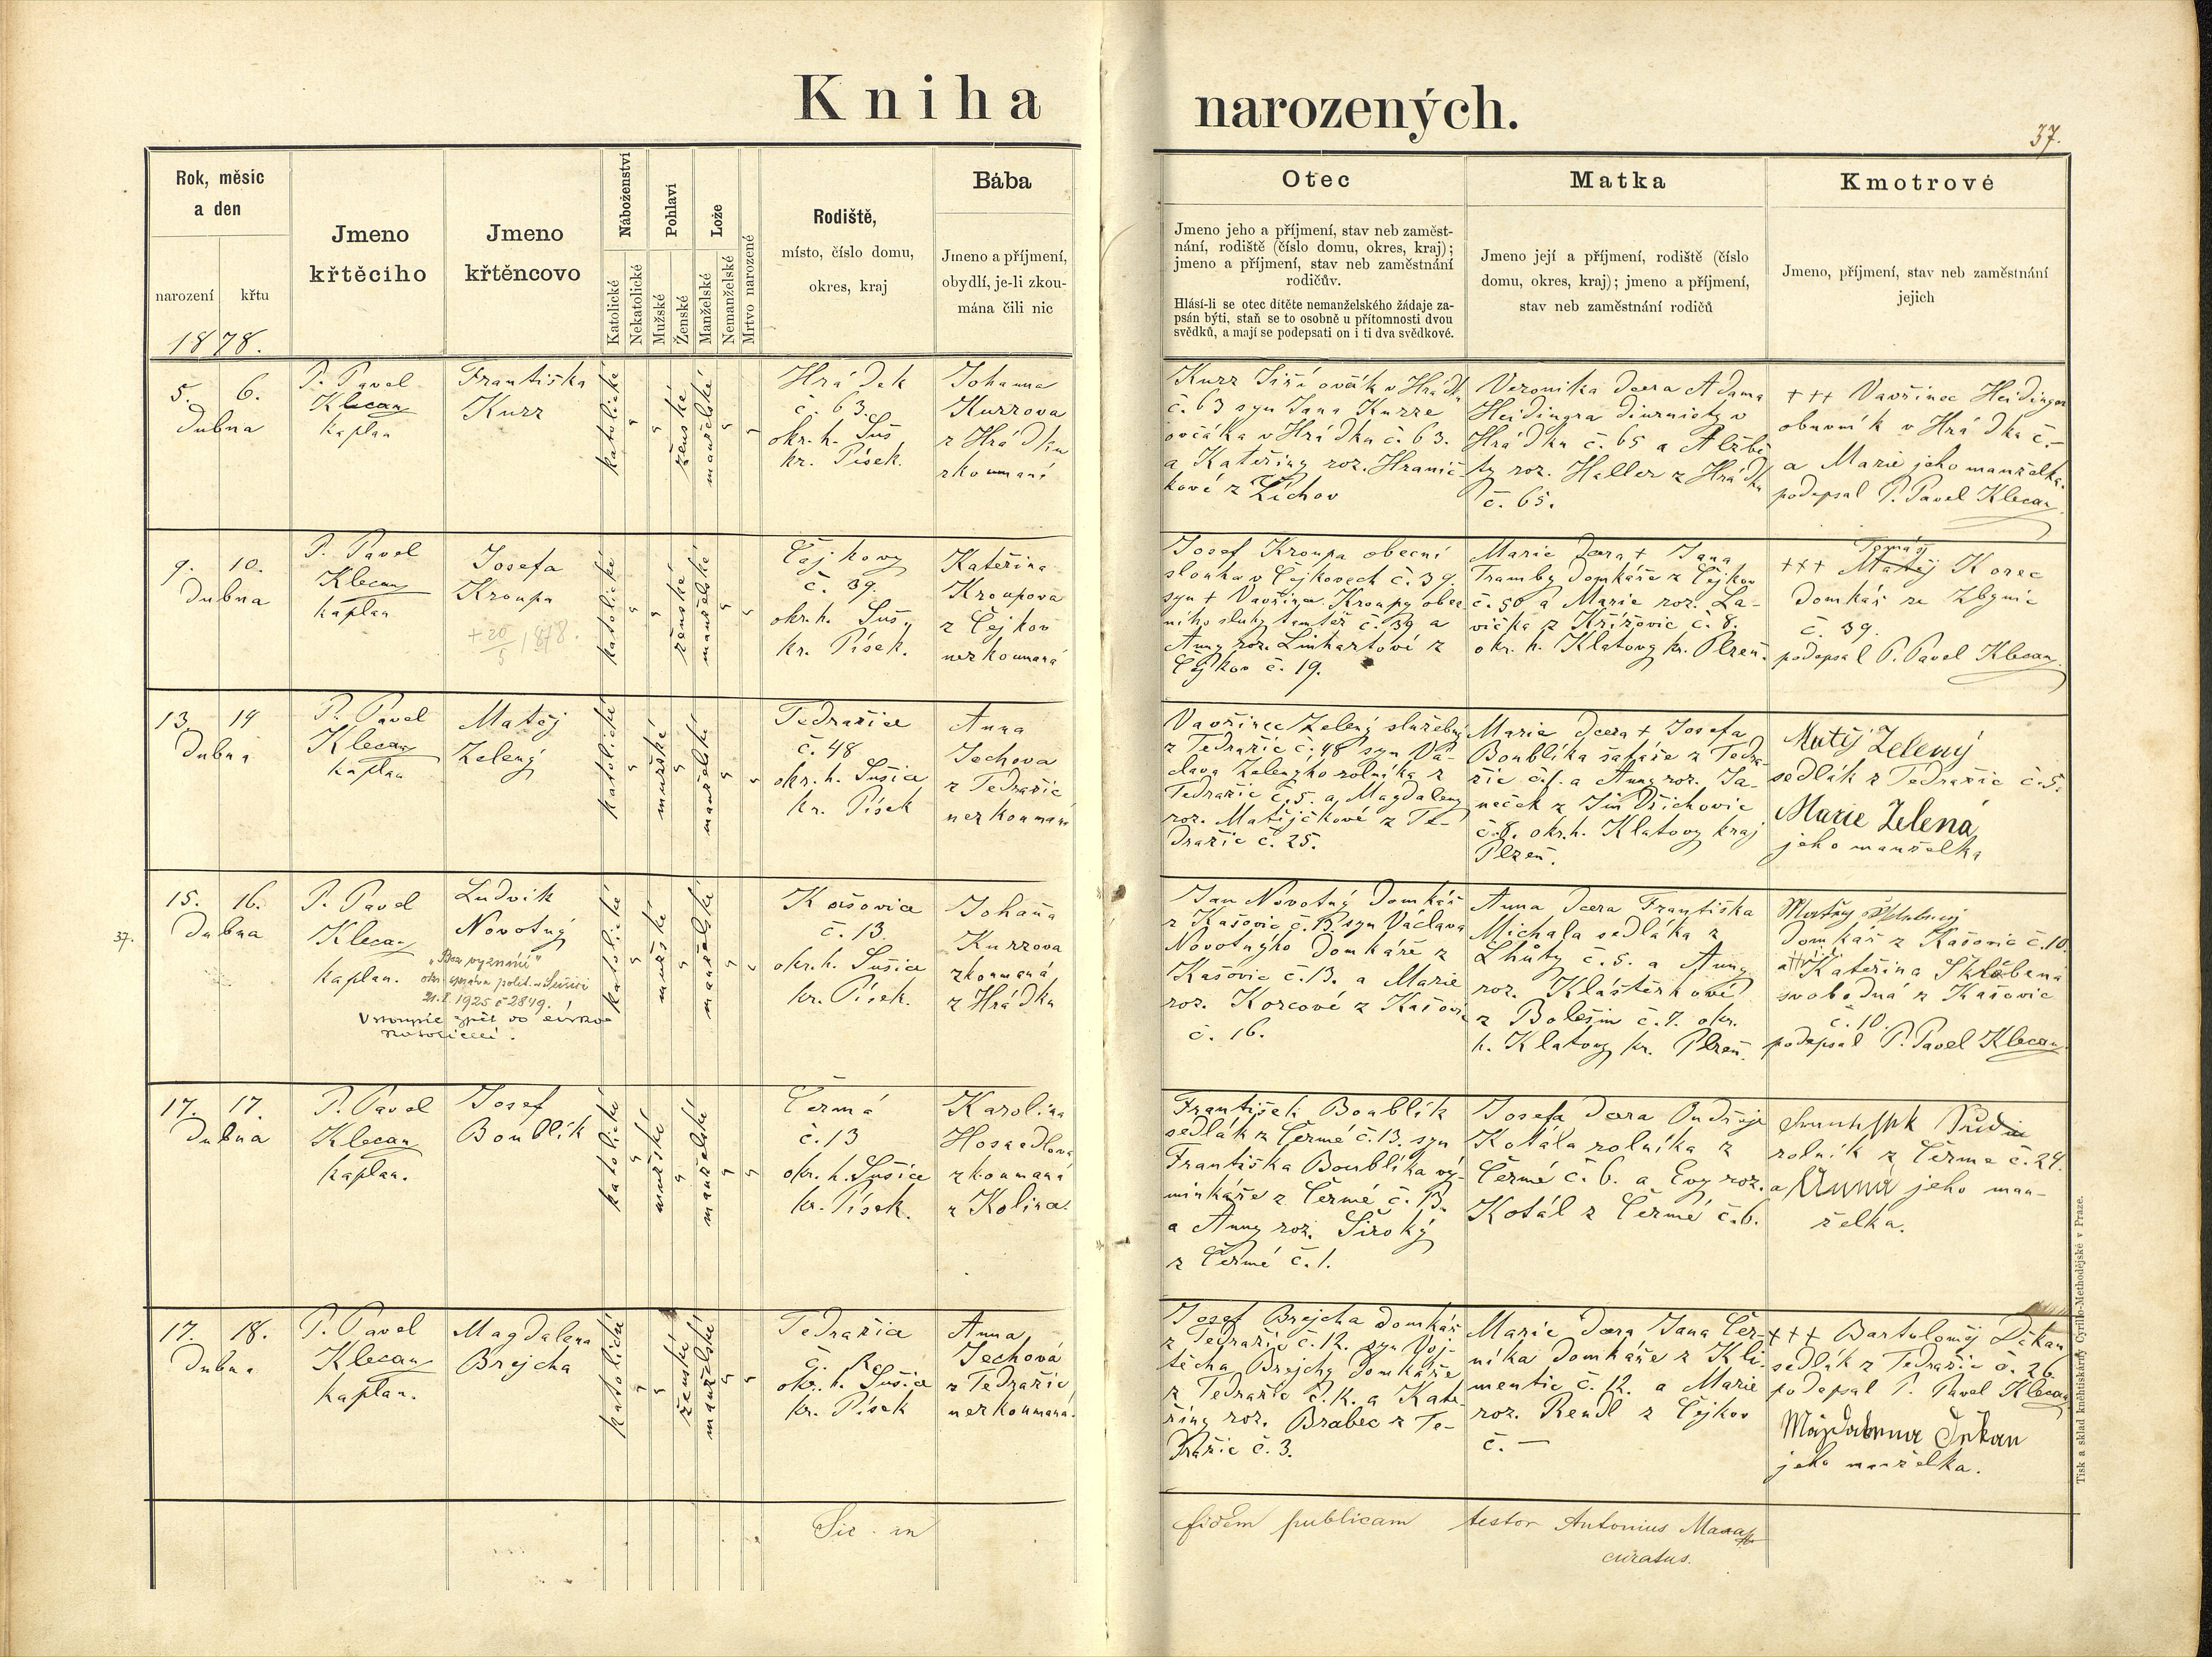 Kniha narozených.
37.
Rok, měsíc
a den
narození
křtu
1878.
Jmeno
křtěcího
Jmeno
křtěncovo
Náboženství
Katolické
Nekatolické
Pohlaví
Mužské
Ženské
Lože
Manželské
Nemanželské
Mrtvo narozené
Rodiště,
místo, číslo domu,
okres, kraj
Bába
Jmeno a příjmení,
obydlí, je-li zkou-
mána čili nic
Otec
Jmeno jeho a příjmení, stav neb zaměst-
nání, rodiště (číslo domu, okres, kraj);
jmeno a příjmení, stav neb zaměstnání
rodičův.
Hlásí-li se otec dítěte nemanželského žádaje za-
psán býti, staň se to osobně u přítomnosti dvou
svědků, a mají se podepsati on i ti dva svědkové.
Matka
Jmeno její a příjmení, rodiště (číslo
domu, okres, kraj); jmeno a příjmení,
stav neb zaměstnání rodičů
Kmotrové
Jmeno, příjmení, stav neb zaměstnání
jejich
5. 6.
Dubna
P. Pavel
Klecan
kaplan
Františka
Kurz
katolické
ženské
manželské
Hrádek
č. 63.
okr. h. Suš
kr. Písek.
Johanna
Kurzova
z Hrádku
zkoumaná
Kurz Jiří ovčák v Hrádk
č. 63 syn Jana Kurze
ovčáka v Hrádku č. 63.
a Kateřiny roz. Hranič-
kové z Lichov
Veronika dcera Adama
Heidingra diurnisty v
Hrádku č. 65 a Alžbě
ty roz. Haller z Hrádku
č. 65.
+++ Vavřinec Heidinger
obuvník v Hrádku č. –
a Marie jeho manželka.
podepsal P. Pavel Klecan
9. 10.
Dubna
P. Pavel
Klecan
kaplan
Josefa
Kroupa
+ 20/5 1878.
katolické
ženské
manželské
Čejkovy
č. 39.
okr. h. Suš.
kr. Písek.
Kateřina
Kroupova
z Čejkov
nezkoumaná
Josef Kroupa obecní
slouha v Čejkovech č. 39.
syn + Vavřince Kroupy obec
ního sluhy tamtéž č. 39 a
Anny roz. Linhartové z
Čejkov č. 19.
Marie dcera + Jana
Tramby domkáře z Čejkov
č. 50 a Marie roz. La-
vička z Křížovic č. 8.
okr. h. Klatovy kr. Plzeň.
Tomáš
+++ Matěj Korec
domkář ze Zbynic
č. 39.
podepsal P. Pavel Klecan
13. 14
Dubna
P. Pavel
Klecan
kaplan
Matěj
Zelený
katolické
mužské
manželské
Tedražice
č. 48
okr. h. Sušice
kr. Písek
Anna
Jechova
z Tedražic
nezkoumaná
Vavřinec Zelený služebný
z Tedražic č. 48 syn Vá-
clava Zeleného rolníka z
Tedražic č. 5. a Magdaleny
roz. Matějčkové z Te-
dražic č. 25.
Marie dcera + Josefa
Boublíka šafáře z Tedra-
žic č. 1. a Anny roz. Ja-
neček z Jindřichovic
č. 8. okr. h. Klatovy kraj
Plzeň.
Matěj Zelený
sedlák z Tedražic č. 5.
Marie Zelená
jeho manželka
37.
15. 16.
Dubna
P. Pavel
Klecan
kaplan.
Ludvík
Novotný
„Bez vyznání"
okr. správa polit. v Sušici
21. I. 1925 č 2849.
Vstoupil zpět do církve
katolické.
katolické
mužské
manželské
Kašovice
č. 13
okr. h. Sušice
kr. Písek.
Johana
Kurzova
zkoumaná
z Hrádku
Jan Novotný domkář
z Kašovic č. 13. syn Václava
Novotného domkáře z
Kašovic č. 13. a Marie
roz. Korcové z Kašovic
č. 16.
Anna dcera Františka
Michala sedláka z
Lhůty č. 5. a Anny
roz. Klášterkové
z Bolešin č. 7. okr.
h. Klatovy kr. Plzeň.
domkář z Kašovic č. 10.
a +++ Kateřina Skřábena
svobodná z Kašovic
č. 10.
podepsal P. Pavel Klecan
17. 17.
Dubna
P. Pavel
Klecan
kaplan.
Josef
Boublík
katolické
mužské
manželské
Čermá
č. 13
okr. h. Sušice
kr. Písek.
Karolina
Hosnedlová
zkoumaná
z Kolinca.
František Boublík
sedlák z Čermé č. 13. syn
Františka Boublíka vý-
minkáře z Čermé č. 13.
a Anny roz. Široký
z Čermé č. 1.
Josefa dcera Ondřeje
Kotála rolníka z
Čermé č. 6. a Evy roz.
Kotál z Čermé č. 6.
rolník z Čermé č. 24.
a Anna jeho man-
želka.
17. 18.
Dubna
P. Pavel
Klecan
kaplan.
Magdalena
Brejcha
katolické
ženské
manželské
Tedražice
č. 12
okr. h. Sušice
kr. Písek
Anna
Jechová
z Tedražic
nezkoumaná.
Josef Brejcha domkář
z Tedražic č. 12. syn Voj-
těcha Brejchy domkáře
z Tedražic č. 12. a Kate-
řiny roz. Brabec z Te-
dražic č. 3.
Marie dcera Jana Čer-
níka domkáře z Kli-
mentic č. 12. a Marie
roz. Rendl z Čejkov
č. —
+++ Bartoloměj Děkan
sedlák z Tedražic č. 26.
podepsal P. Pavel Klecan
Magdalena Děkan
jeho manželka.
Sic in fidem publicam testor Antonius
curatus.
Tisk a sklad kněhtiskárny Cyrillo-Methodějské v Praze.